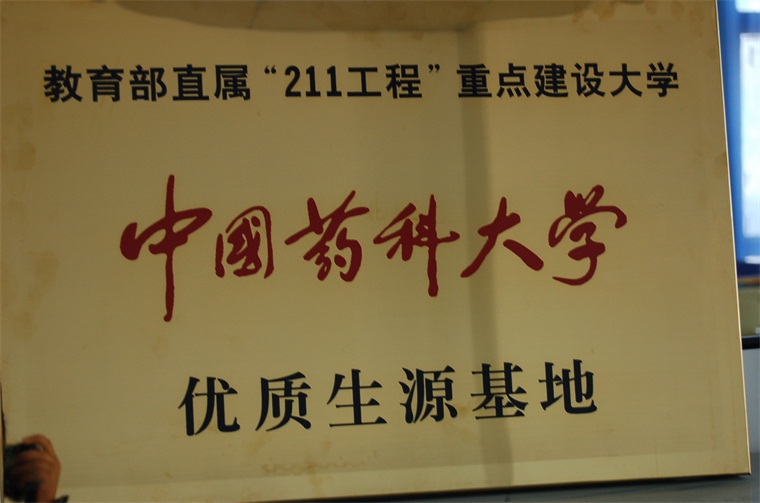 教育部直属“211工程”重点建设大学
中國药科大学
优质生源基地